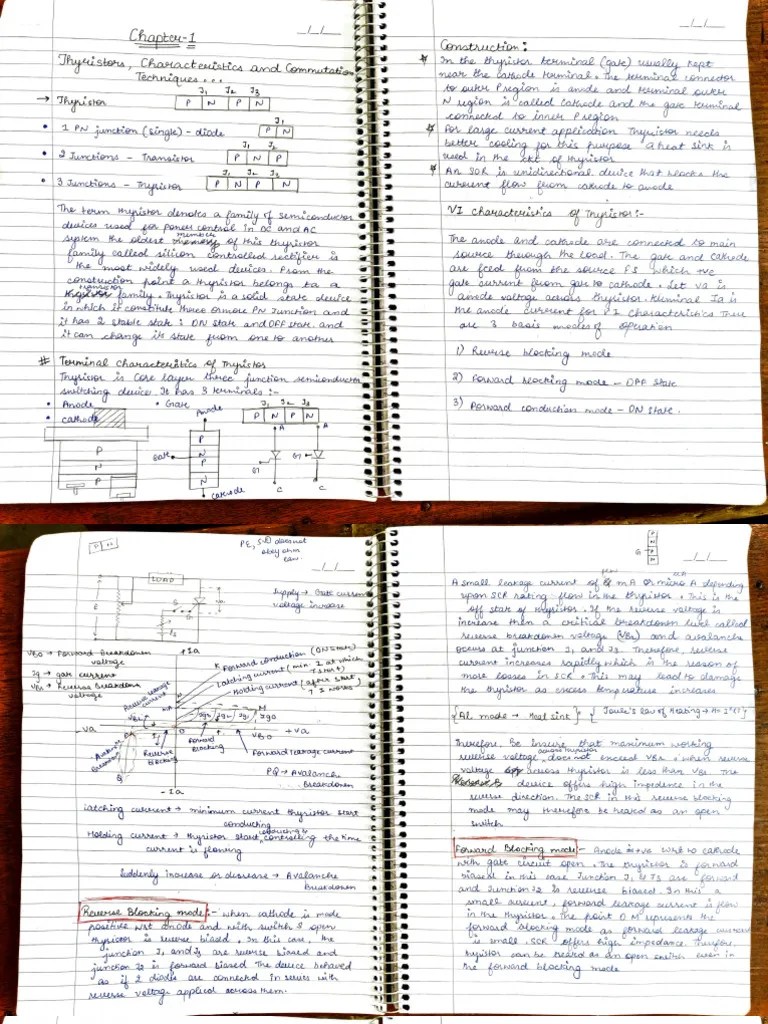 Chapter-1
Thyristors, Characteristics and Commutation
Techniques...
J1 J2 J3
→ Thyristor P N P N
• 1 PN junction (single) - diode P N
J1
• 2 Junctions - Transistor P N P
J1 J2 J3
• 3 Junctions - Thyristor P N P N
The term thyristor denotes a family of semiconductor
devices used for power control in DC and AC
system the oldest member of this thyristor
family called silicon controlled rectifier is
the most widely used devices. From the
construction point a thyristor belongs to a
transistor family. Thyristor is a solid state device
in which it constitute three or more PN Junction and
it has 2 stable state : ON state and OFF state. and
it can change its state from one to another
# Terminal characteristics of Thyristor
Thyristor is layer three junction semiconductor
switching device. It has 3 terminals :-
• Anode • Gate
• cathode
P
N
P
Anode
P
N
P
N
Gate
Cathode
J1 J2 J3
P N P N
A A
C C
Construction:
* In the thyristor terminal (gate) usually kept
near the cathode terminal. The terminal connector
to outer P region is anode and terminal outer
N region is called cathode and the gate terminal
connected to inner P region
* For large current application Thyristor needs
better cooling for this purpose a heat sink is
used in the ckt of thyristor
* An SCR is unidirectional device that blocks the
current flow from cathode to anode
VI characteristics of Thyristor:-
The anode and cathode are connected to main
source through the load. The gate and cathode
are feed from the source ES which +ve
gate current from gate to cathode. Let Va is
anode voltage across thyristor terminal Ia is
the anode current for V I Characteristics There
are 3 basic modes of operation
1) Reverse blocking mode
2) Forward blocking mode - OFF state
3) Forward conduction mode - ON state.
does not
obey ohm
law.
LOAD
Supply → Gate current
voltage increase
VBO → Forward Breakdown
voltage
Ig → gate current
VBR → Reverse breakdown
voltage
+Ia
Forward conduction (ON state)
Latching current (min. I at which
Holding current (after start
Reverse leakage
current
-Va
+Va
VBO
Reverse
Blocking
Forward
Blocking
Forward leakage current
PQ → Avalanche
Breakdown
-Ia
Latching current → minimum current thyristor start
conducting
Holding current → thyristor start controlling the time
current is flowing
Suddenly increase or decrease → Avalanche
Breakdown
Reverse Blocking mode :- when cathode is made
positive wrt anode and with switch S open
thyristor is reverse biased. In this case, the
junction J1 and J3 are reverse biased and
junction J2 is forward biased The device behaved
as if 2 diodes are connected in series with
reverse voltage applied across them.
G
A small leakage current of mA or micro A depending
upon SCR rating flow in the thyristor. This is the
off state of thyristor. If the reverse voltage is
increase then a critical breakdown level called
reverse breakdown voltage (VBR) and avalanche
occurs at junction J1 and J3. Therefore, reverse
current increases rapidly which is the reason of
more losses in SCR. This may lead to damage
the thyristor as excess temperature increases
{Al made → Heat sink} {Joule's law of Heating →
Therefore, Be insure that maximum working
reverse voltage across thyristor does not exceed VBR. when reverse
voltage across thyristor is less than VBR The
device offers high impedance in the
reverse direction. The SCR in this reverse blocking
mode may therefore be heard as an open
switch
Forward Blocking mode :- Anode is +ve wrt to cathode
with gate circuit open. The thyristor is forward
biased in this case Junction J1 & J3 are forward
and Junction J2 is reverse biased. In this a
small current, forward leakage current is flow
in the thyristor. The point O M represents the
forward blocking mode as forward leakage current
is small, SCR offers high impedance. Therefore,
thyristor can be heard as an open switch even in
the forward blocking mode